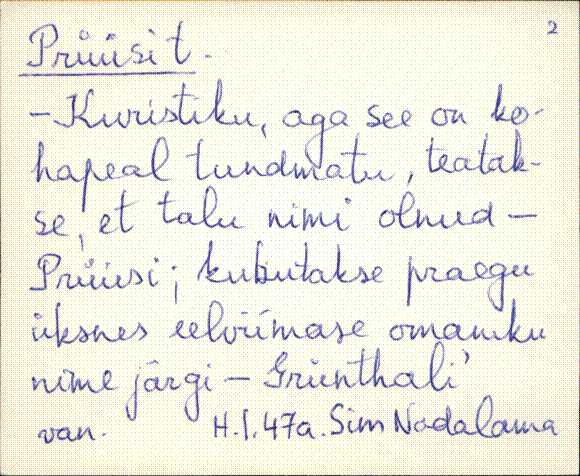 2
Prüüsi t.
– Kuristiku, aga see on ko-
hapeal tundmatu, teatak-
se, et talu nimi olnud –
Prüüsi; kutsutakse praegu
üksnes eelviimase omaniku
nime järgi – Grünthali'
van. H.I. 47a. Sim Nodalama